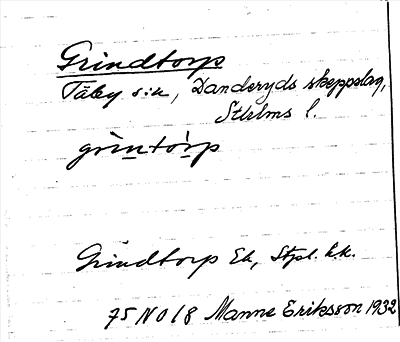 Grindtorp
Täby s:n, Danderyds skeppslag,
Sthlms l.
grìntòrp
Grindtorp Ek, Stpl. kk.
75 NO 18 Manne Eriksson 1932